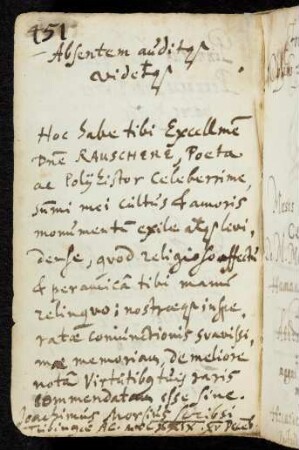 151
Absentem auditqꝫ
videtqꝫ
Hoc habe tibi Excellme
Dne RAUSCHERE, Poeta
ac Polyhistor Celeberrime,
sum̄i mei cultus & amoris
monumentum exile atqꝫ levi-
dense, quod religioso affectu
& peramica tibi manu
relinquo; nostraeqꝫ inspe-
ratae coniunctionis suavissi-
mae memoriam, de meliore
nota Virtutibꝰ tuis raris
commendatam esse sine.
Joachimus Morsius scribsi
Tubingae